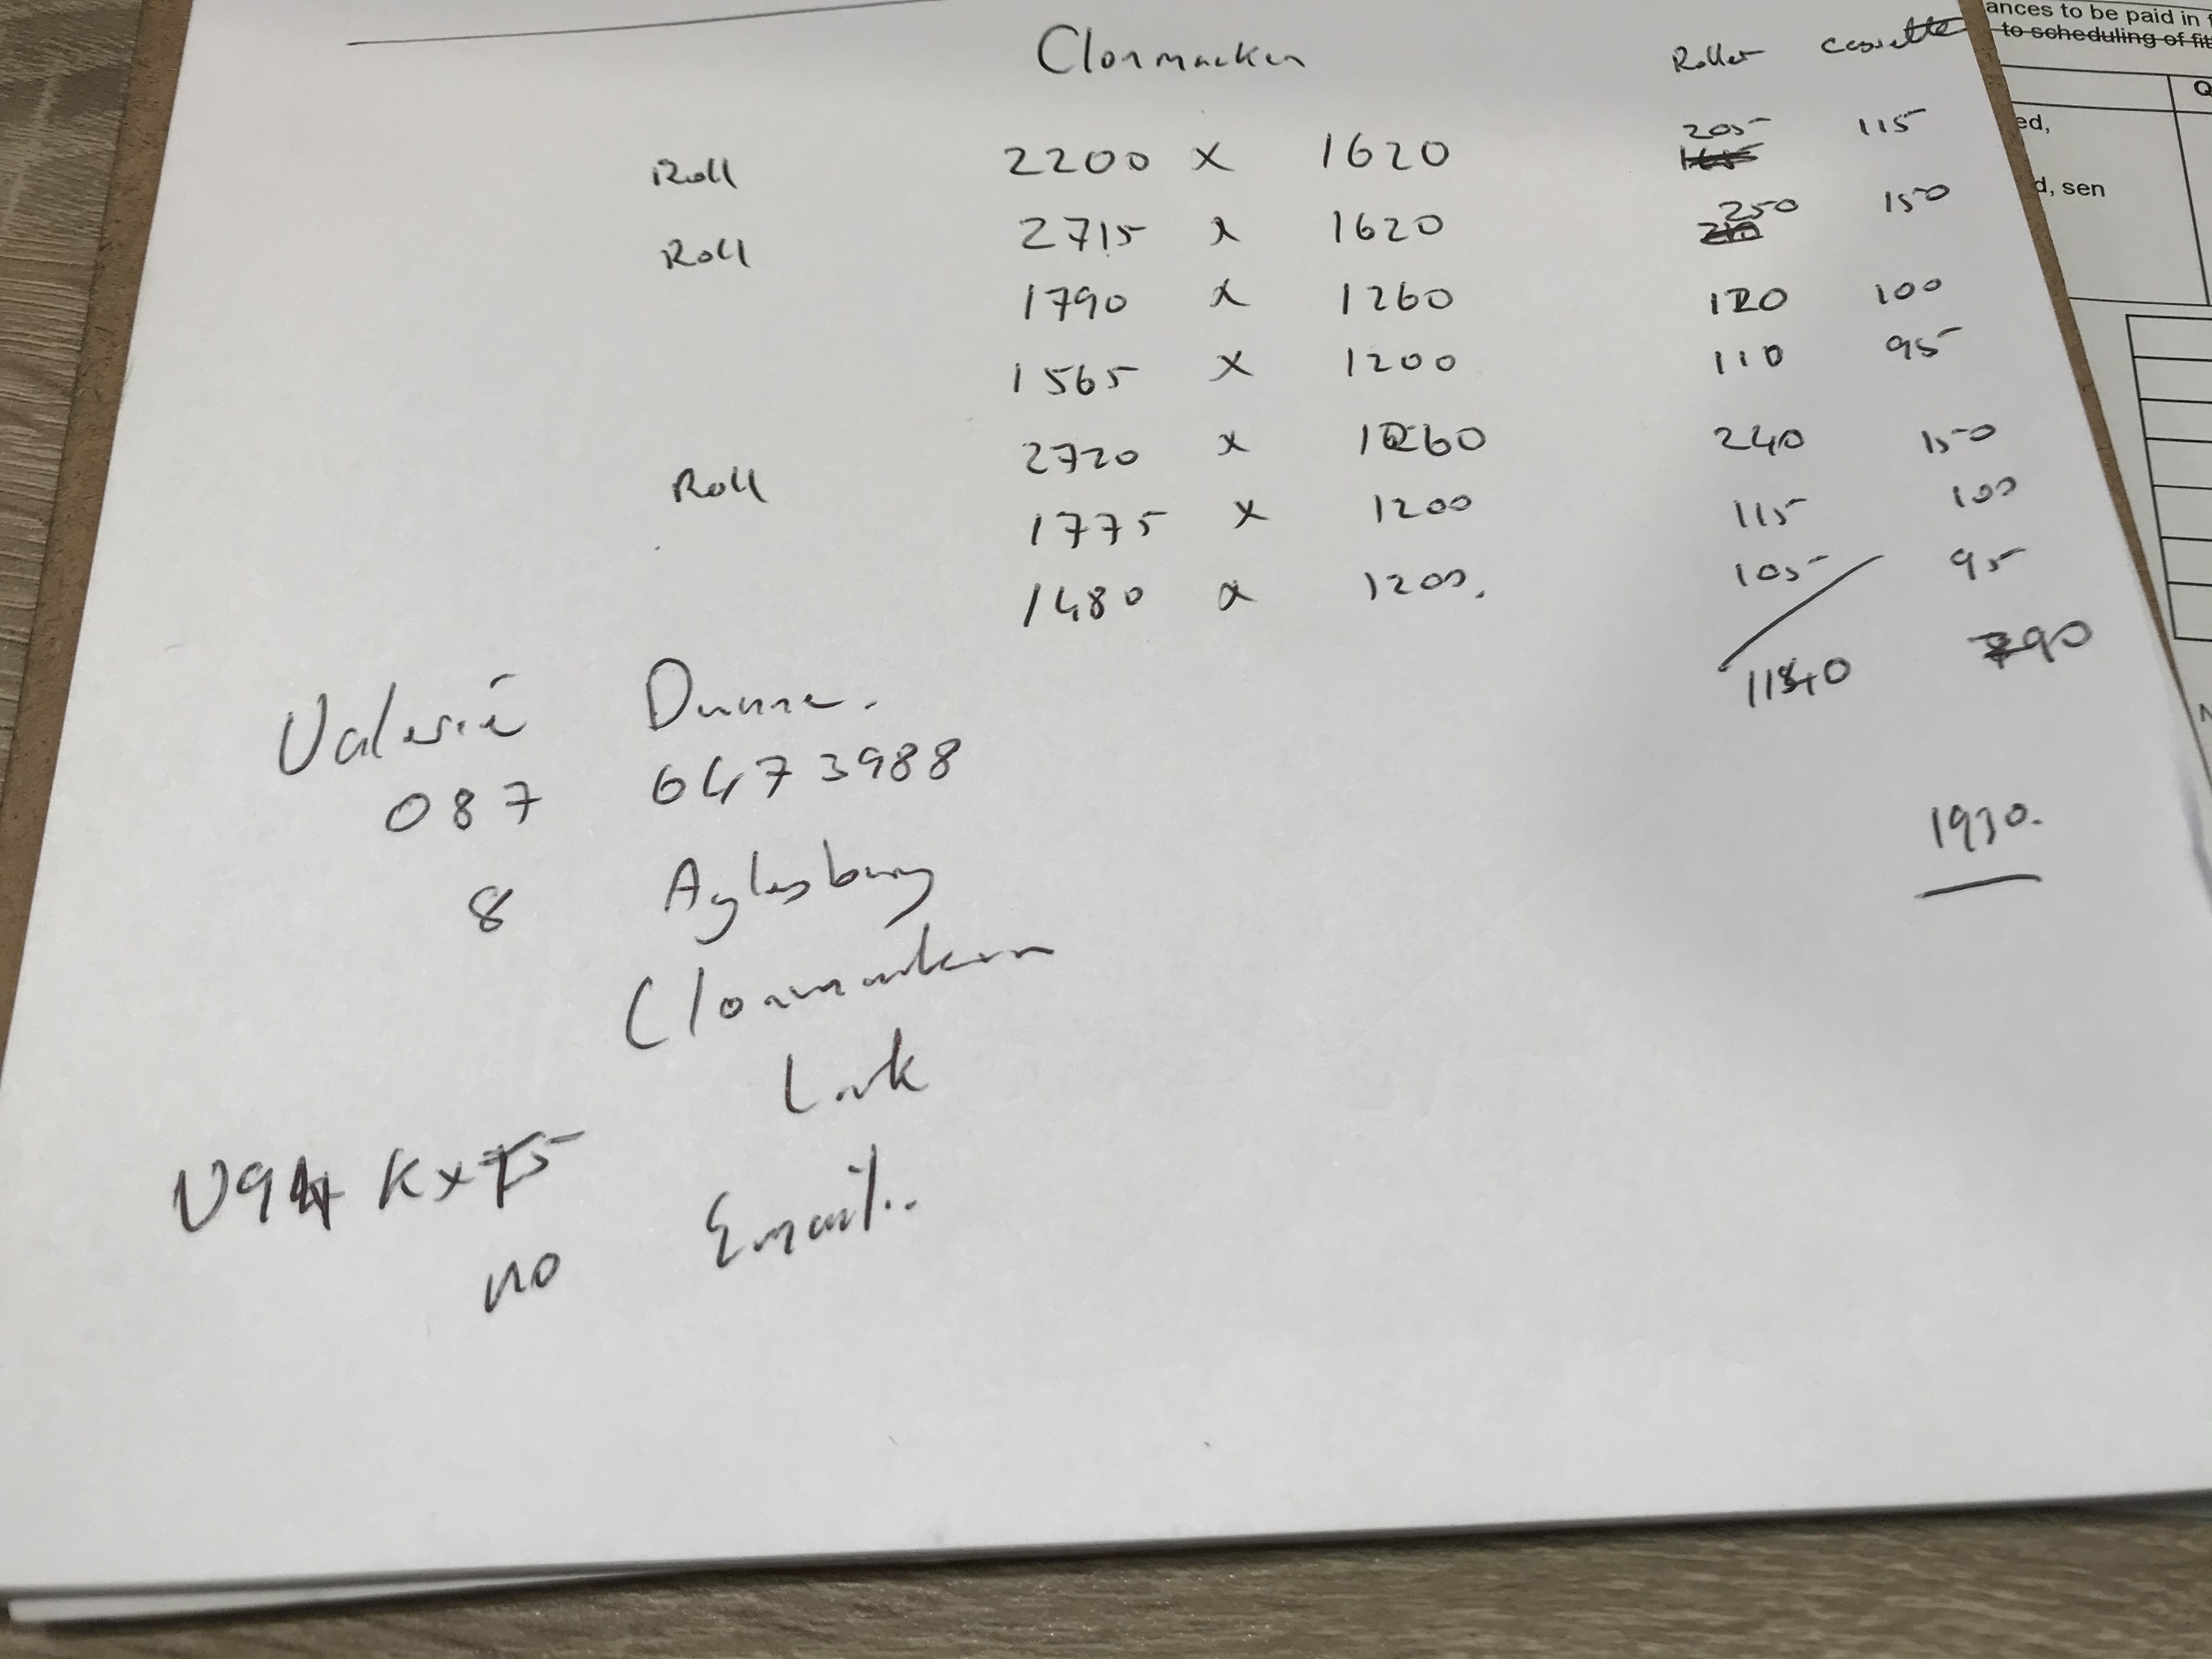 Clonmacken Roller Cassette
Roll 2200 x 1620 205 115
Roll 2715 x 1620 250 150
1790 x 1260 120 100
1565 x 1200 110 95
Roll 2720 x 1260 240 150
1775 x 1200 115 100
1480 x 1200. 105 95
1140 790
1930.
Valerie Dunne.
087 6473988
8 Aylesbury
Clonmacken
Lmk
V94 KX75
no Email..
ances to be paid in f
to scheduling of fit
Q
ed,
d, sen
N